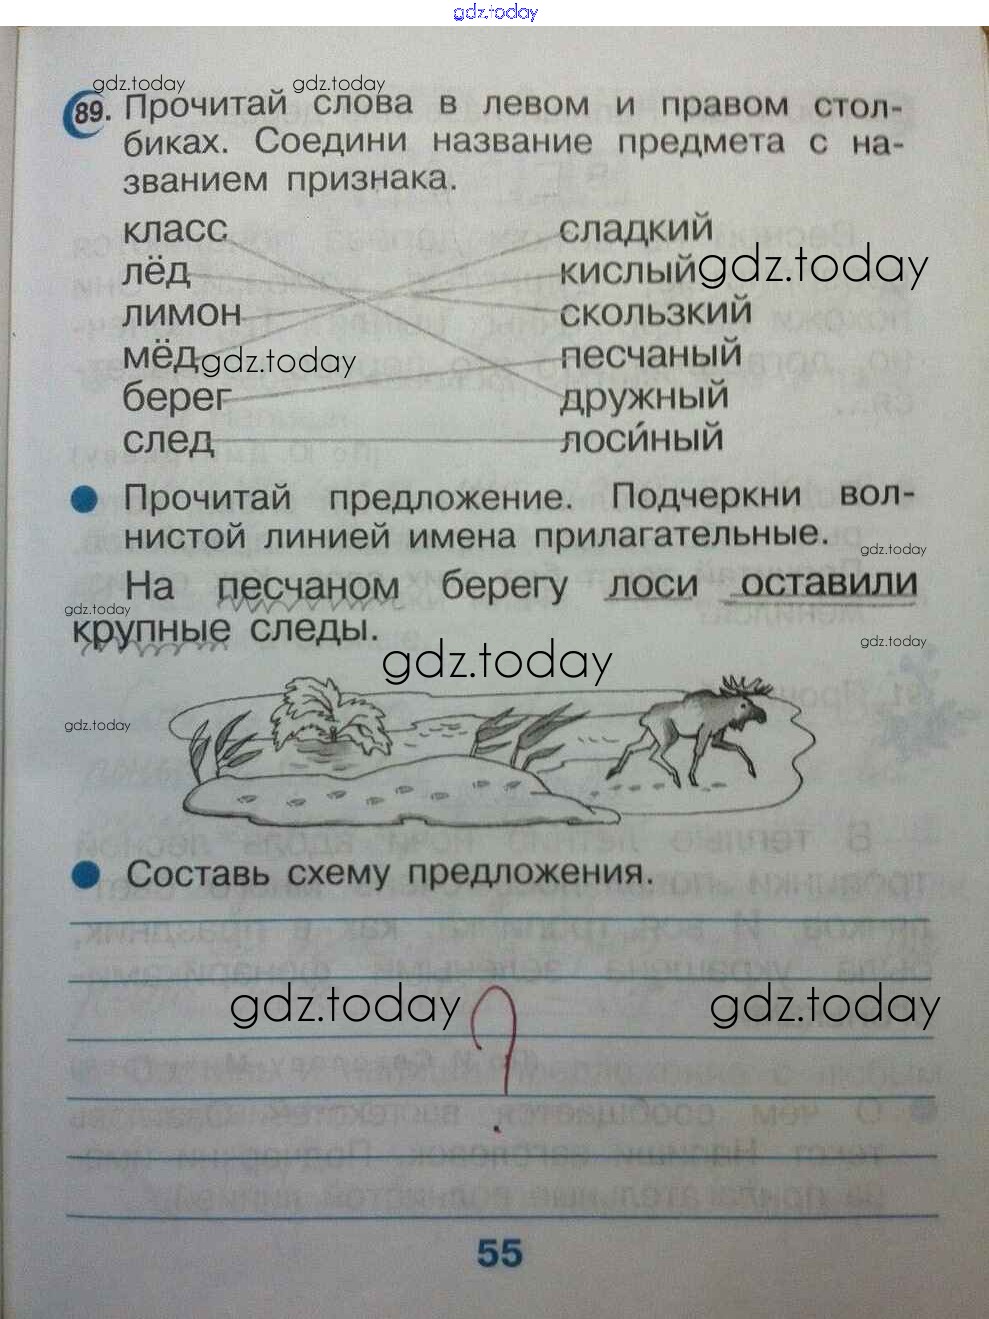 gdz.today
gdz.today gdz.today
89. Прочитай слова в левом и правом стол-
биках. Соедини название предмета с на-
званием признака.
класс сладкий
лёд кислый gdz.today
лимон скользкий
мёд gdz.today песчаный
берег дружный
след лоси́ный
Прочитай предложение. Подчеркни вол-
нистой линией имена прилагательные.
gdz.today
На песчаном берегу лоси оставили
gdz.today
крупные следы.
gdz.today
gdz.today
gdz.today
Составь схему предложения.
gdz.today ? gdz.today
55